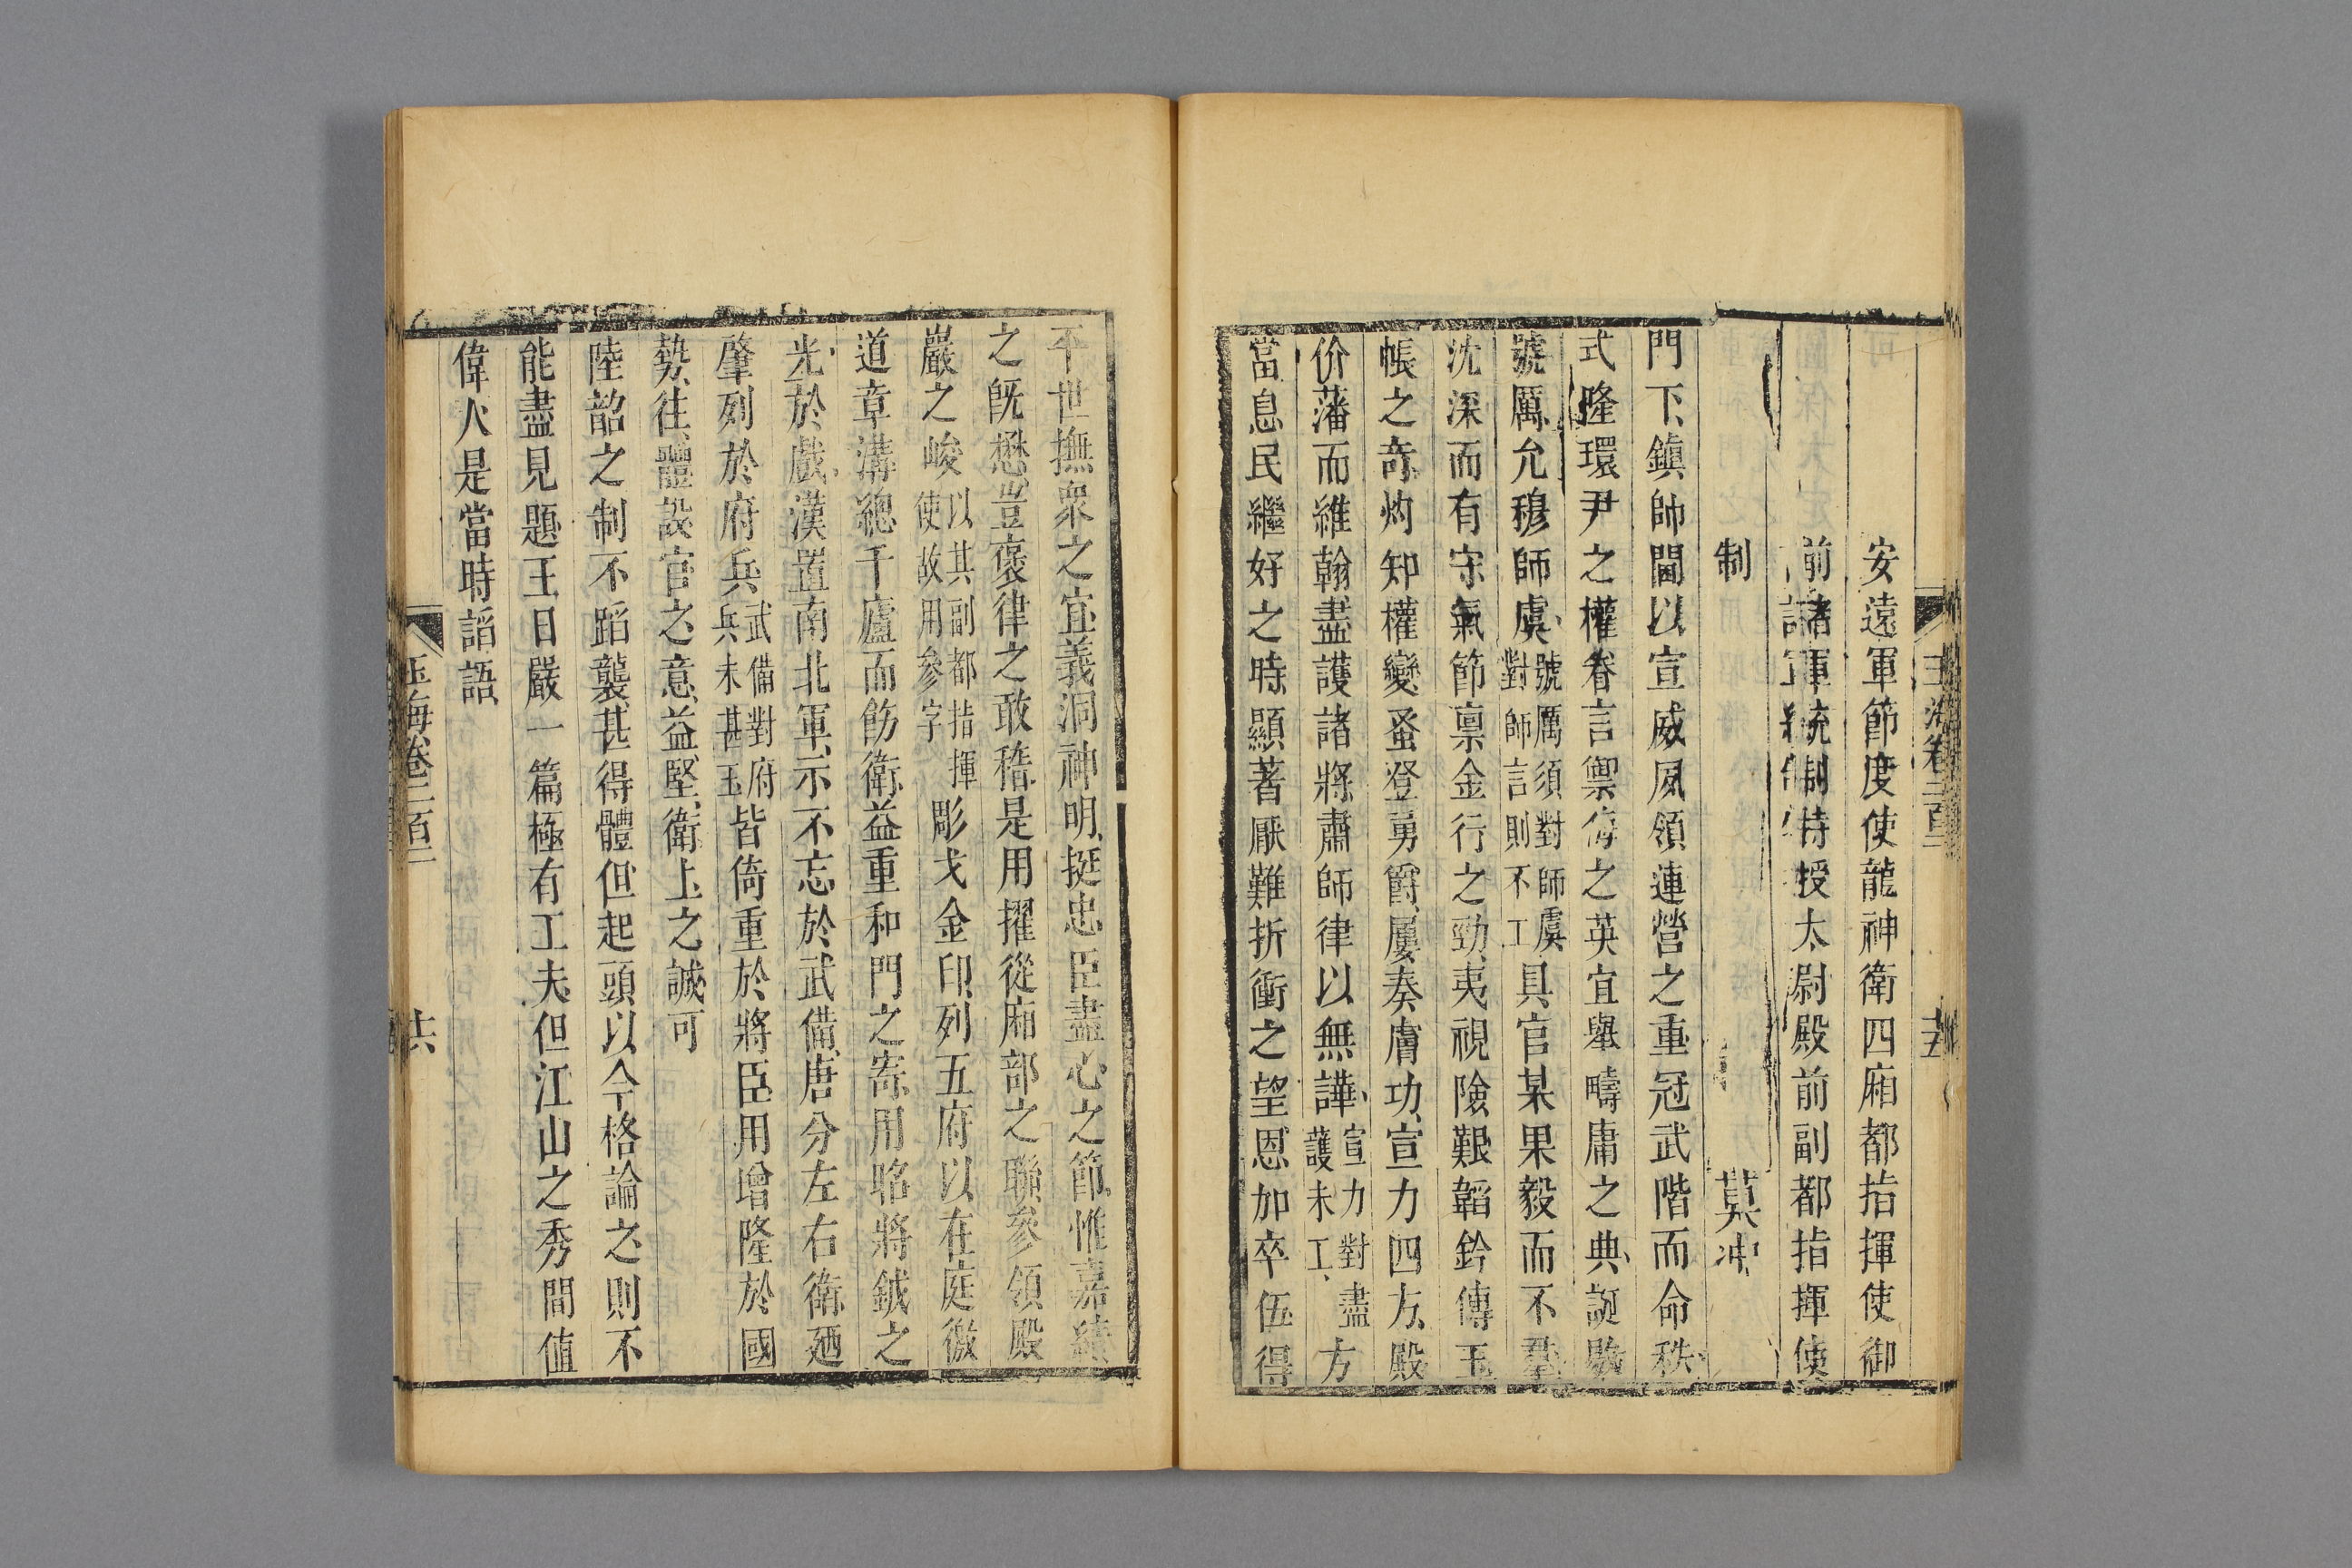 安遠軍節度使龍神衛四廂都指揮使御
前諸軍統制特授太尉殿前副都指揮使
制 莫冲
門下鎮帥閫以宣威夙領連營之重冠武階而命秩
式隆環尹之權眷言禦侮之英宜舉疇庸之典誕敭
號厲允穆師虞號厲須對師虞對師言則不工具官某果毅而不羣
沈深而有守氣節禀金行之勁夷視險艱韜鈐傳玉
帳之竒灼知權變蚤登勇爵屢奏膚功宣力四方殿
价藩而維翰盡護諸將肅師律以無譁宣力對盡護未工方
當息民繼好之時顯著厭難折衝之望恩加卒伍得
不世撫衆之宜義洞神明挺忠臣盡心之節惟嘉績
之旣懋豈褒律之敢稽是用擢從廂部之聯參領殿
嚴之峻以其副都指揮使故用參字彫戈金印列五府以在庭徼
道章溝總千廬而飭衛益重和門之寄用昭將鉞之
光於戲漢置南北軍示不忘於武備唐分左右衛廼
肇列於府兵武備對府兵未甚玉皆倚重於將臣用增隆於國
勢徃體設官之意益堅衛上之誠可
陸韶之制不蹈襲甚得體但起頭以今格論之則不
能盡見題王日嚴一篇極有工夫但江山之秀間值
偉人是當時謟語
玉海卷二百二 共